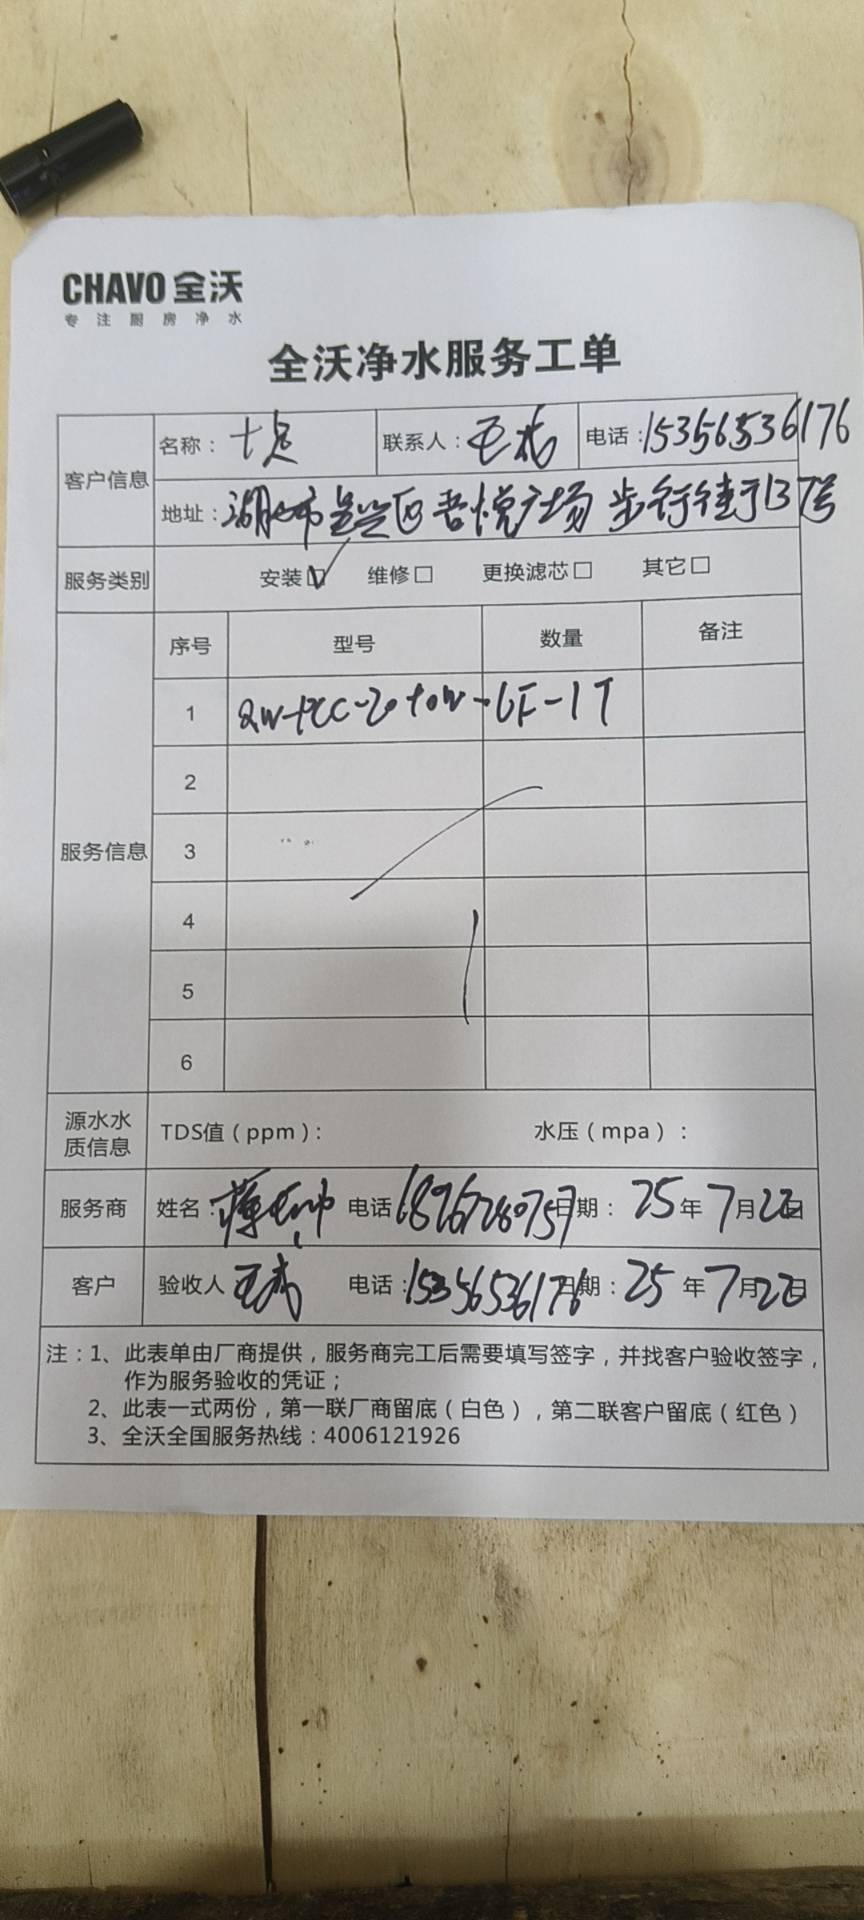 CHAVO 全沃
专注厨房净水
全沃净水服务工单
客户信息
名称：十足 联系人： 电话：15356536176
地址：湖州市吴兴区吾悦广场步行街137号
服务类别 安装☑ 维修□ 更换滤芯□ 其它□
服务信息
序号 型号 数量 备注
1
2
3
4
5
6
源水水质信息 TDS值（ppm）： 水压（mpa）：
服务商 姓名： 电话 期： 25年7月22日
客户 验收人 电话：15356536176 期： 25年7月22日
注：1、此表单由厂商提供，服务商完工后需要填写签字，并找客户验收签字，
作为服务验收的凭证；
2、此表一式两份，第一联厂商留底（白色），第二联客户留底（红色）
3、全沃全国服务热线：4006121926